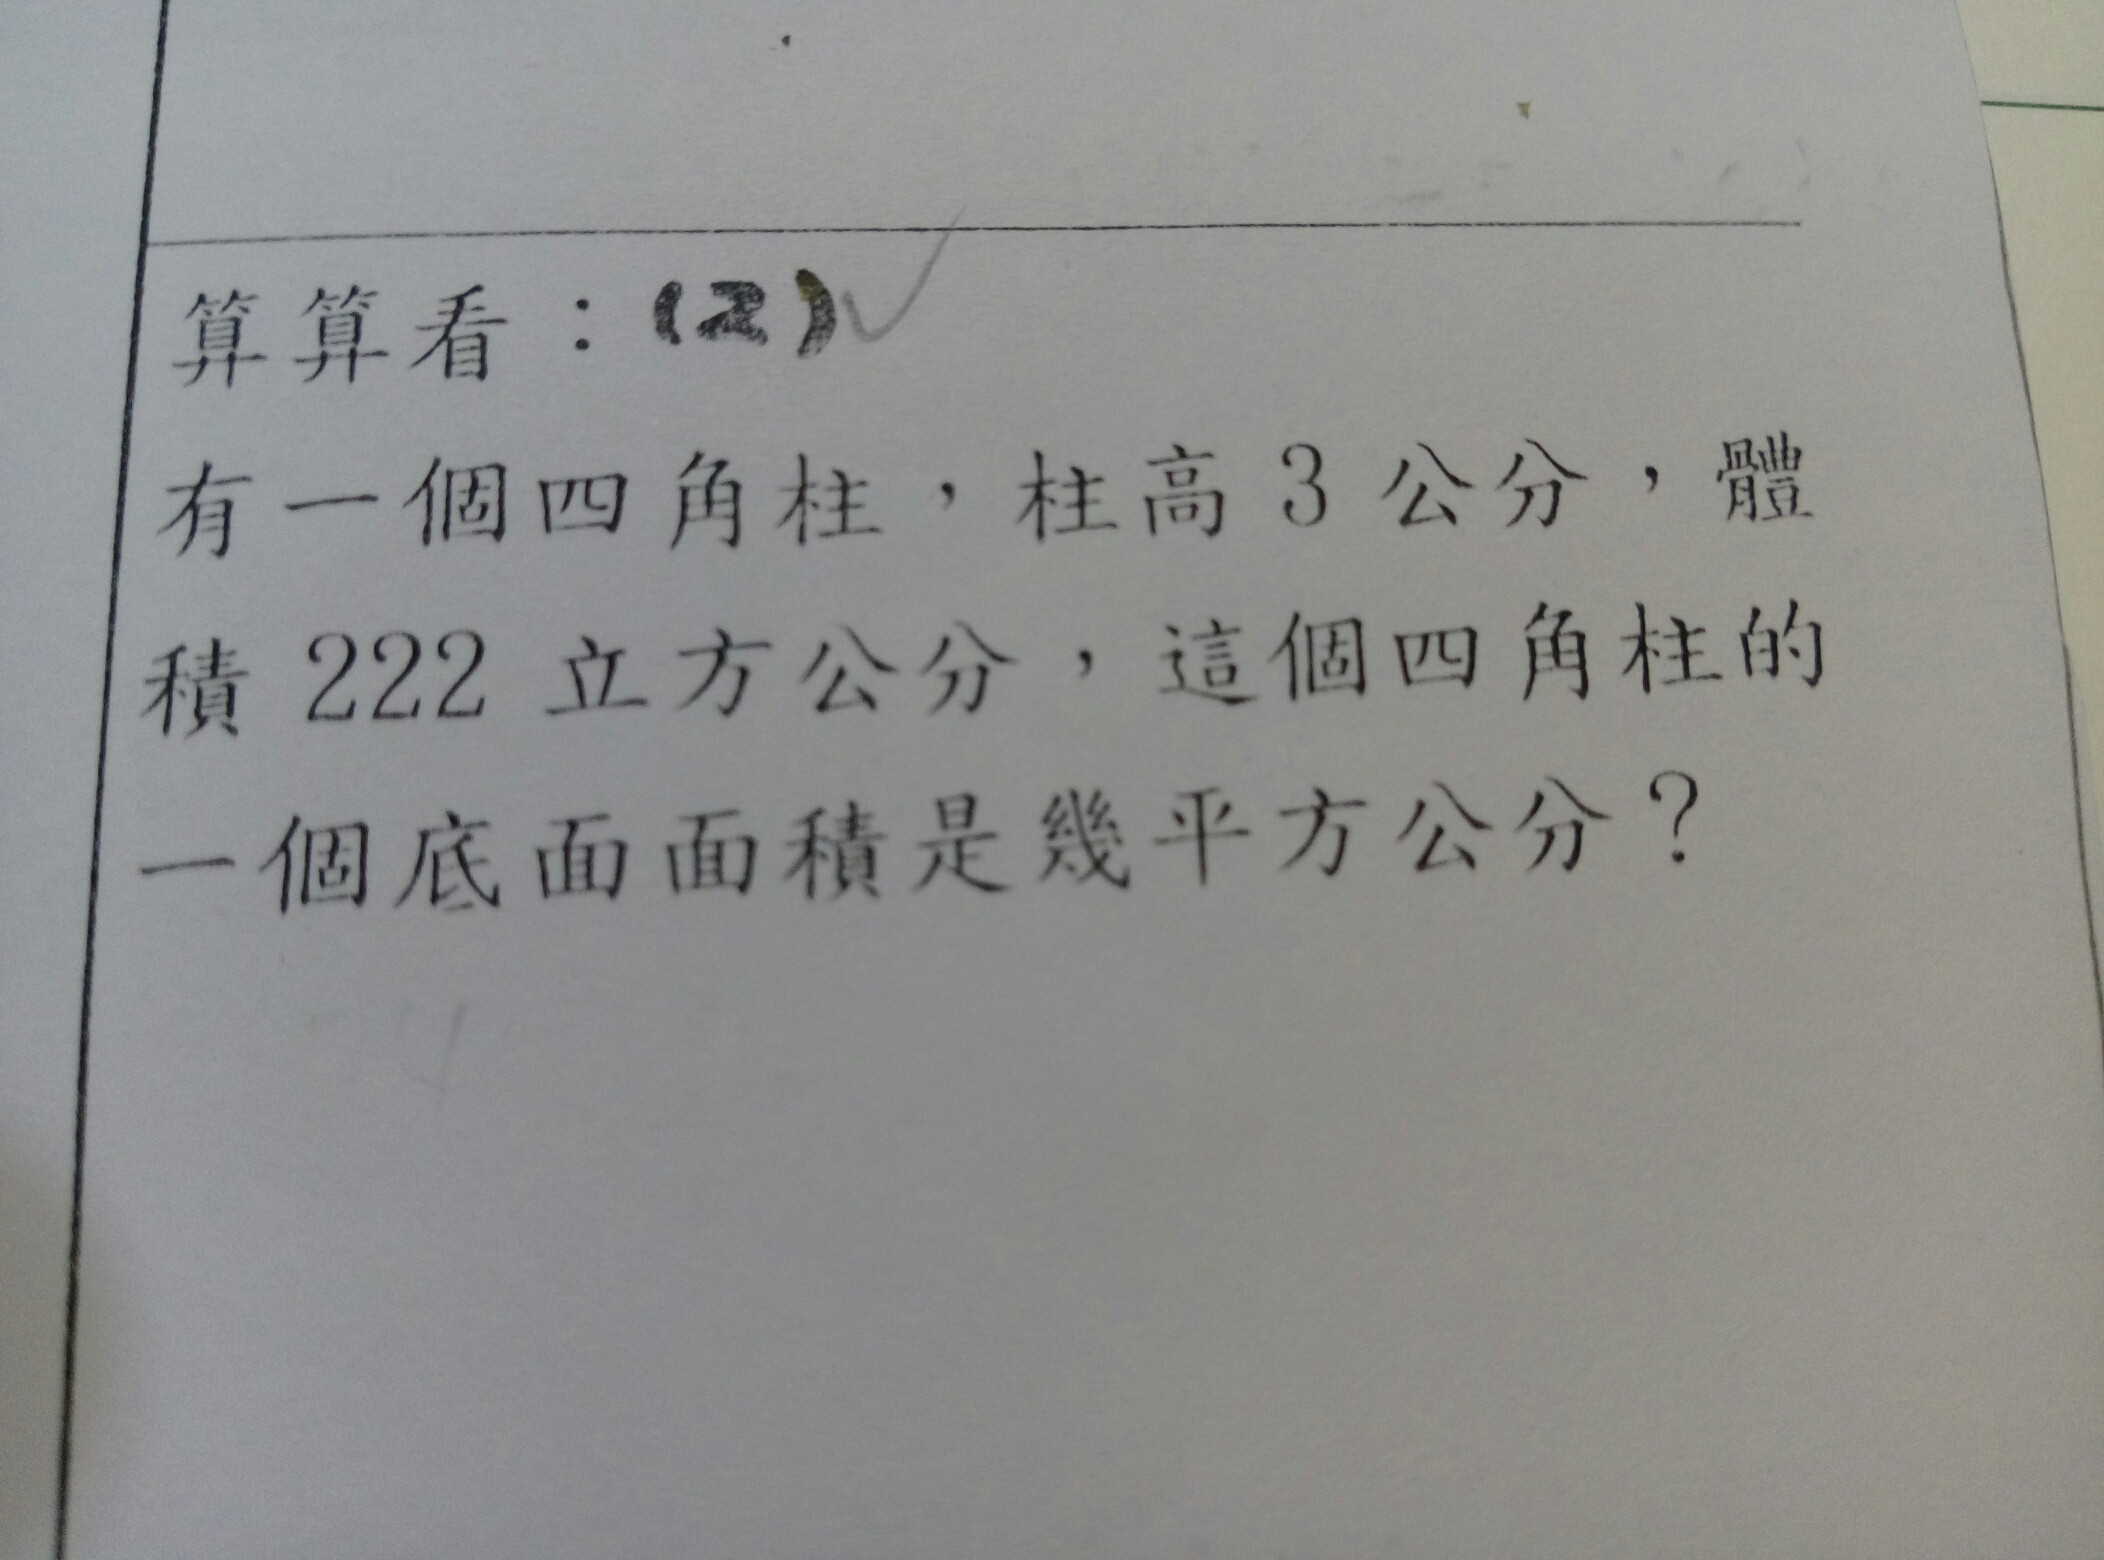 算算看：(2)
有一個四角柱，柱高 3 公分，體
積 222 立方公分，這個四角柱的
一個底面面積是幾平方公分？